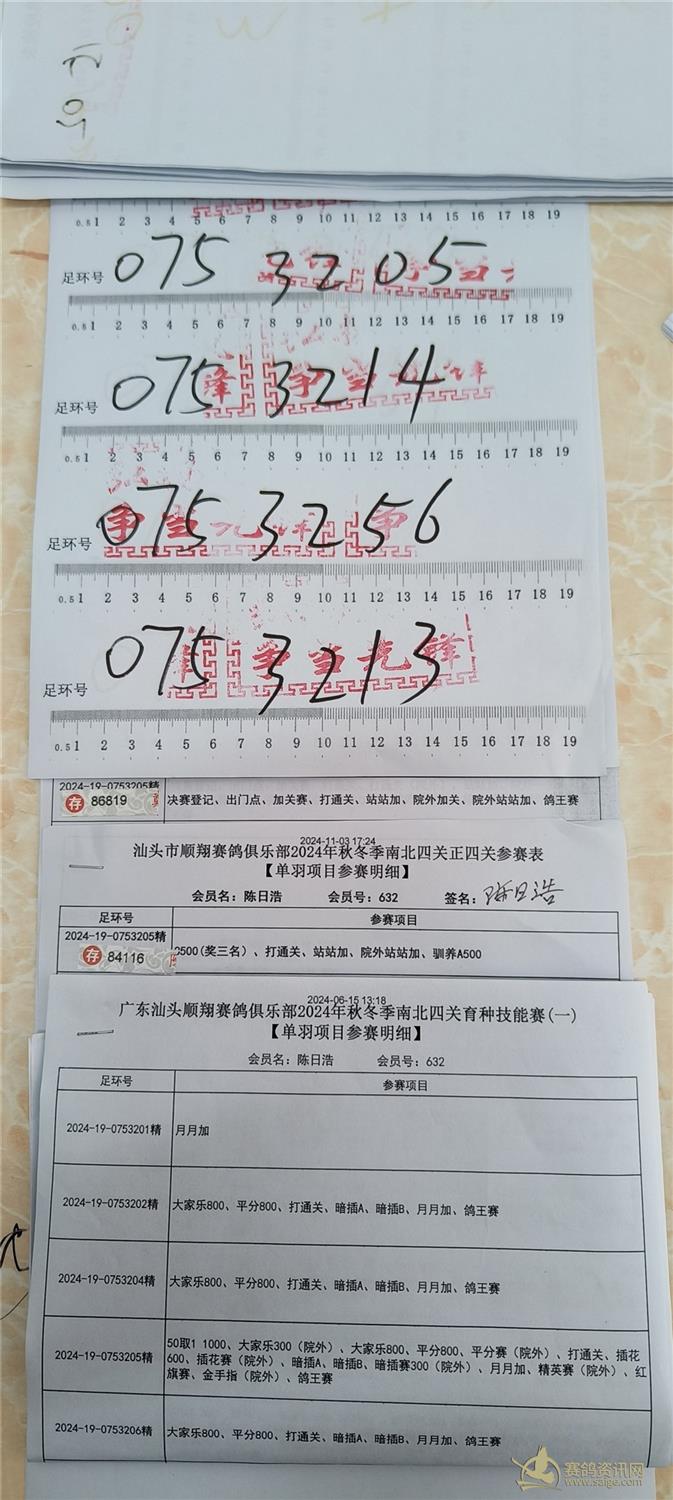 0.5 1 2 3 4 5 6 7 8 9 10 11 12 13 14 15 16 17 18 19
足环号 075 3205
0.5 1 2 3 4 5 6 7 8 9 10 11 12 13 14 15 16 17 18 19
足环号 075 3214
0.5 1 2 3 4 5 6 7 8 9 10 11 12 13 14 15 16 17 18 19
足环号 075 3256
争当
0.5 1 2 3 4 5 6 7 8 9 10 11 12 13 14 15 16 17 18 19
足环号 075 3213
争当先锋
0.5 1 2 3 4 5 6 7 8 9 10 11 12 13 14 15 16 17 18 19
2024-19-0753205精
存 86819
决赛登记、出门点、加关赛、打通关、站站加、院外加关、院外站站加、鸽王赛
2024-11-03 17:24
汕头市顺翔赛鸽俱乐部2024年秋冬季南北四关正四关参赛表
【单羽项目参赛明细】
会员名：陈日浩 会员号：632 签名：陈日浩
足环号 参赛项目
2024-19-0753205精
存 84116
500(奖三名）、打通关、站站加、院外站站加、驯养A500
2024-06-15 13:18
广东汕头顺翔赛鸽俱乐部2024年秋冬季南北四关育种技能赛(一)
【单羽项目参赛明细】
会员名：陈日浩 会员号：632
足环号 参赛项目
2024-19-0753201精 月月加
2024-19-0753202精 大家乐800、平分800、打通关、暗插A、暗插B、月月加、鸽王赛
2024-19-0753204精 大家乐800、平分800、打通关、暗插A、暗插B、月月加、鸽王赛
2024-19-0753205精 50取1 1000、大家乐300（院外）、大家乐800、平分800、平分赛（院外）、打通关、插花
600、插花赛（院外）、暗插A、暗插B、暗插赛300（院外）、月月加、精英赛（院外）、红
旗赛、金手指（院外）、鸽王赛
2024-19-0753206精 大家乐800、平分800、打通关、暗插A、暗插B、月月加、鸽王赛
赛鸽资讯网
www.saige.com